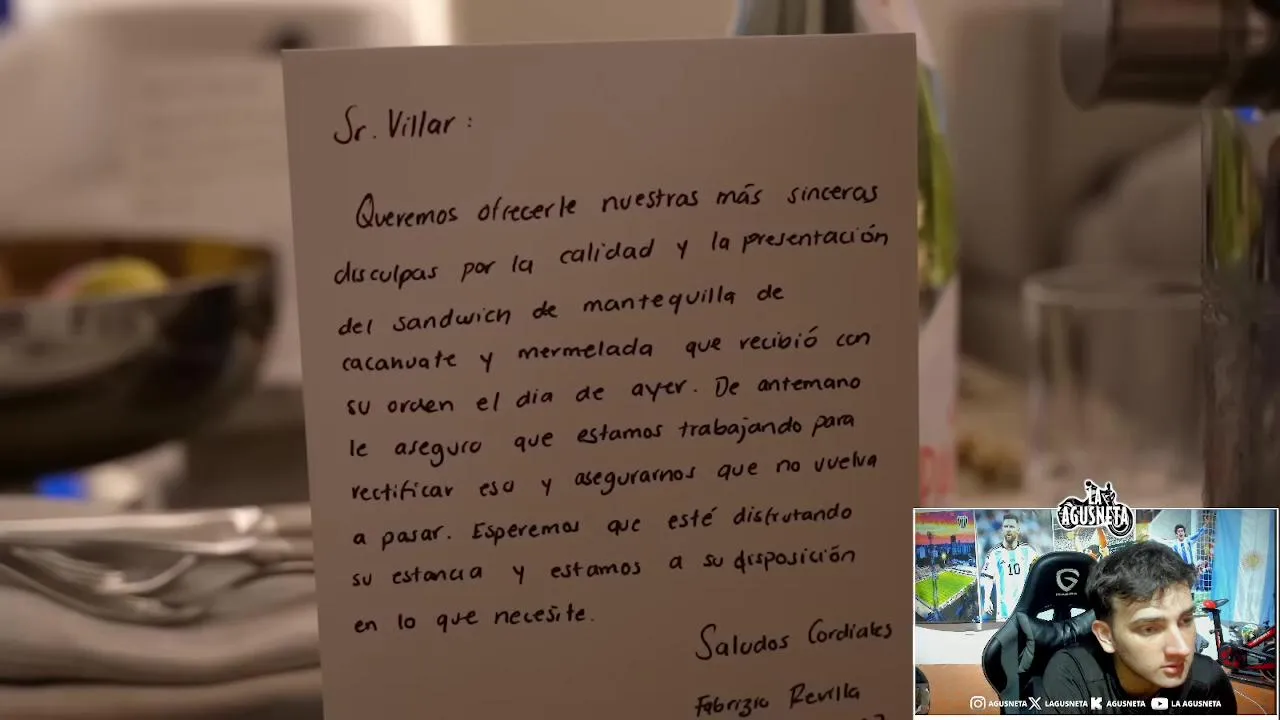 Sr. Villar:
Queremos ofrecerle nuestras más sinceras
disculpas por la calidad y la presentación
del sandwich de mantequilla de
cacahuate y mermelada que recibió con
su orden el dia de ayer. De antemano
le aseguro que estamos trabajando para
rectificar eso y asegurarnos que no vuelva
a pasar. Esperemos que esté disfrutando
su estancia y estamos a su disposición
en lo que necesite.
Saludos Cordiales
Fabrizio Revilla
LA
AGUSNETA
10
AGUSNETA LAGUSNETA AGUSNETA LA AGUSNETA